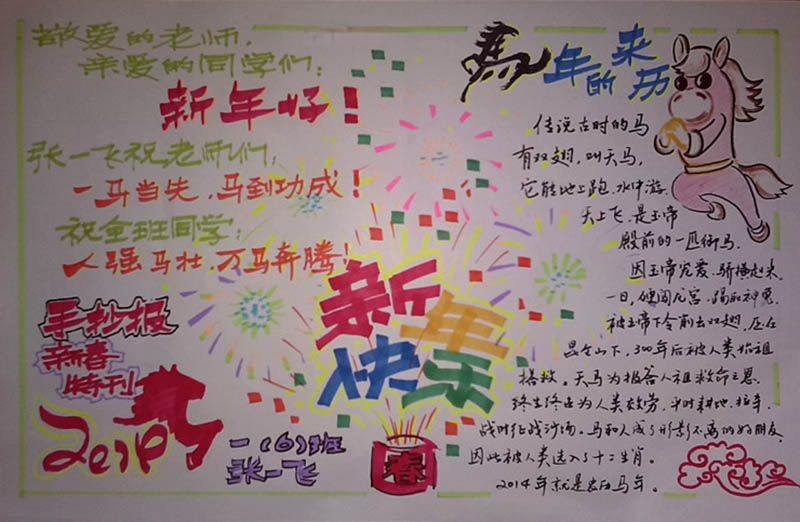 敬爱的老师，
亲爱的同学们：
新年好！
张一飞祝老师们：
一马当先，马到功成！
祝全班同学：
人强马壮，万马奔腾！
手抄报
新春
特刊
2014
一（6）班
张一飞
新年
快乐
春
馬年的来历
传说古时的马
有双翅，叫天马，
它能地上跑，水中游，
天上飞，是玉帝
殿前的一匹御马。
因玉帝宠爱，骄横起来。
一日，硬闯龙宫，踢死神龟，
被玉帝下令削去双翅，压在
昆仑山下，300年后被人类始祖
拯救。天马为报答人祖救命之恩，
终生终世为人类效劳，平时耕地、拉车，
战时征战沙场。马和人成了形影不离的好朋友，
因此被人类选入了十二生肖。
2014年就是农历马年。